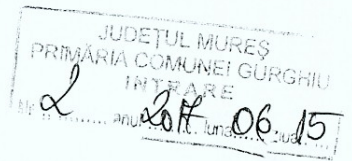 JUDEȚUL MUREȘ
PRIMĂRIA COMUNEI GURGHIU
INTRARE
Nr. 2 anul 2017 luna 06 ziua 15